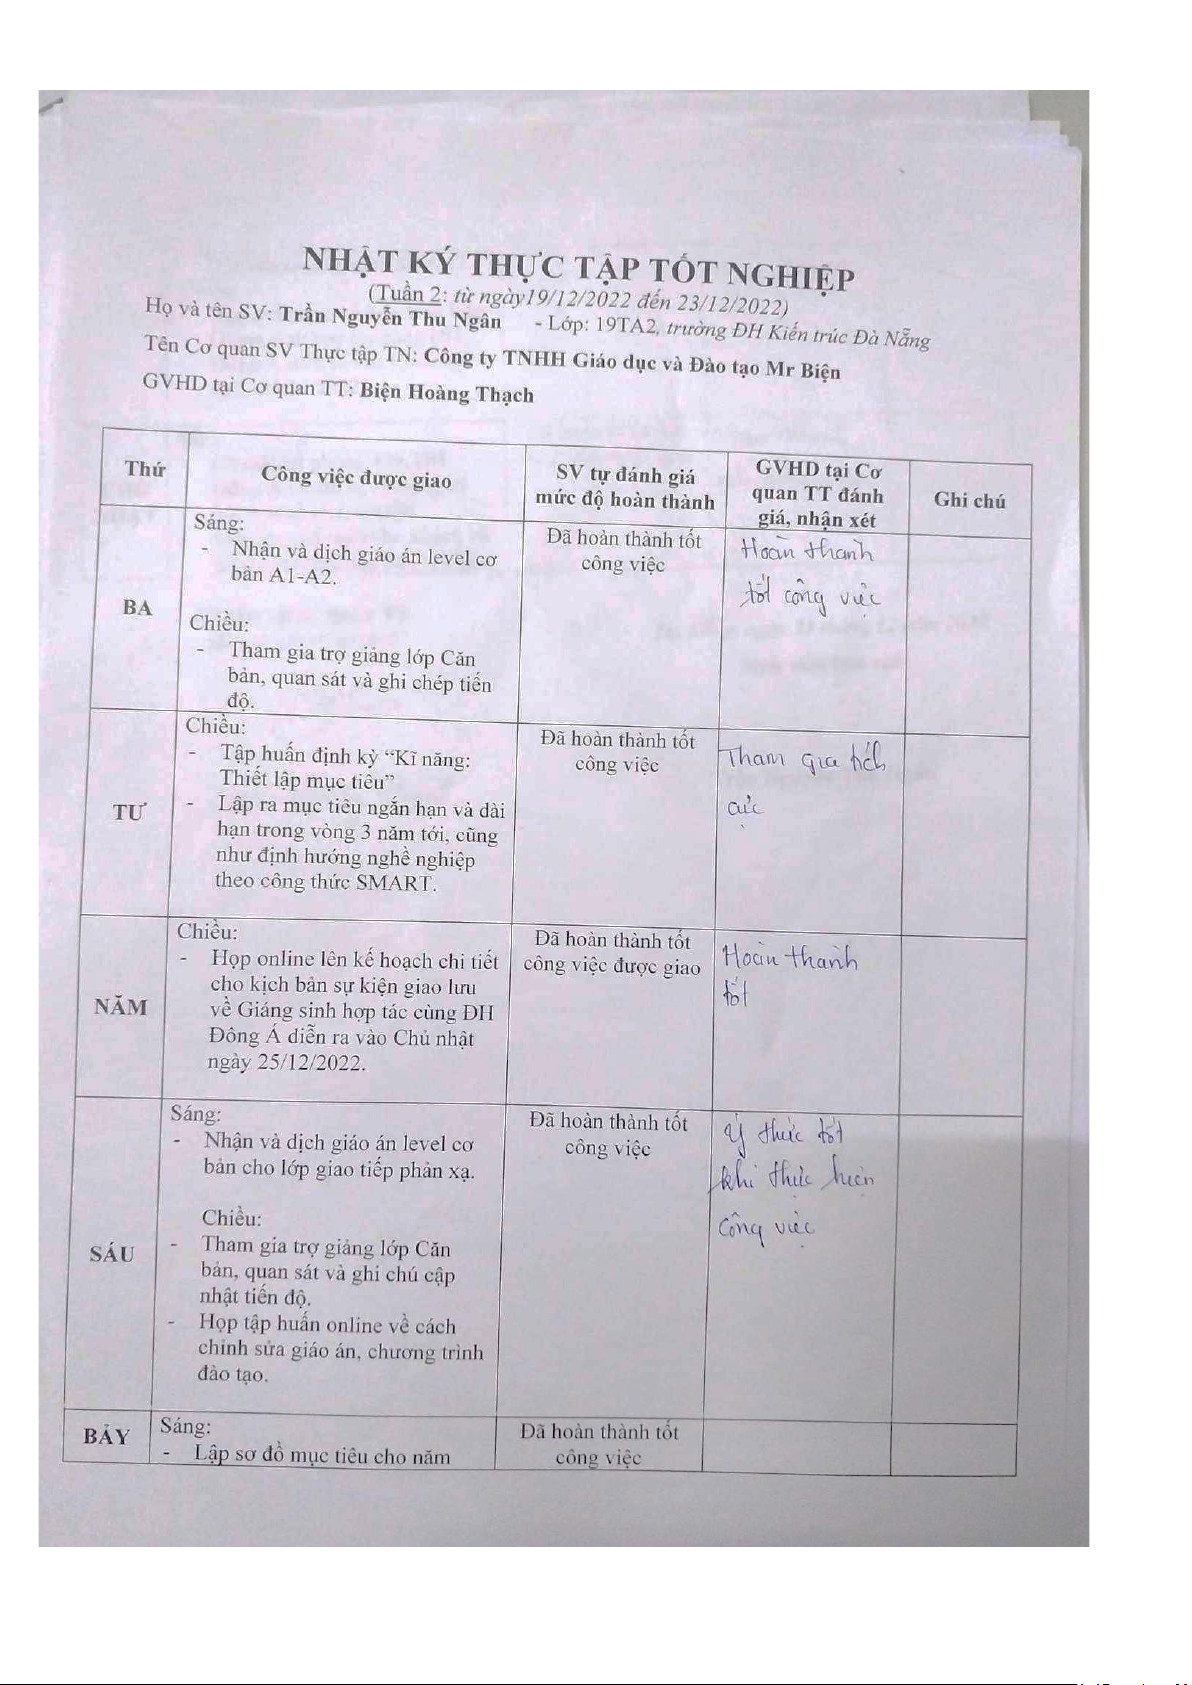 NHẬT KÝ THỰC TẬP TỐT NGHIỆP
(Tuần 2: từ ngày19/12/2022 đến 23/12/2022)
Họ và tên SV: Trần Nguyễn Thu Ngân - Lớp: 19TA2, trường ĐH Kiến trúc Đà Nẵng
Tên Cơ quan SV Thực tập TN: Công ty TNHH Giáo dục và Đào tạo Mr Biện
GVHD tại Cơ quan TT: Biện Hoàng Thạch
Thứ
Công việc được giao
SV tự đánh giá
mức độ hoàn thành
GVHD tại Cơ
quan TT đánh
giá, nhận xét
Ghi chú
BA
Sáng:
- Nhận và dịch giáo án level cơ
bản A1-A2.
Chiều:
- Tham gia trợ giảng lớp Căn
bản, quan sát và ghi chép tiến
độ.
Đã hoàn thành tốt
công việc
Hoàn thành
tốt công việc
TƯ
Chiều:
- Tập huấn định kỳ “Kĩ năng:
Thiết lập mục tiêu”
- Lập ra mục tiêu ngắn hạn và dài
hạn trong vòng 3 năm tới, cũng
như định hướng nghề nghiệp
theo công thức SMART.
Đã hoàn thành tốt
công việc
Tham gia tích
cực
NĂM
Chiều:
- Họp online lên kế hoạch chi tiết
cho kịch bản sự kiện giao lưu
về Giáng sinh hợp tác cùng ĐH
Đông Á diễn ra vào Chủ nhật
ngày 25/12/2022.
Đã hoàn thành tốt
công việc được giao
Hoàn thành
tốt
SÁU
Sáng:
- Nhận và dịch giáo án level cơ
bản cho lớp giao tiếp phản xạ.
Chiều:
- Tham gia trợ giảng lớp Căn
bản, quan sát và ghi chú cập
nhật tiến độ.
- Họp tập huấn online về cách
chỉnh sửa giáo án, chương trình
đào tạo.
Đã hoàn thành tốt
công việc
Ý thức tốt
khi thực hiện
công việc
BẢY
Sáng:
- Lập sơ đồ mục tiêu cho năm
Đã hoàn thành tốt
công việc